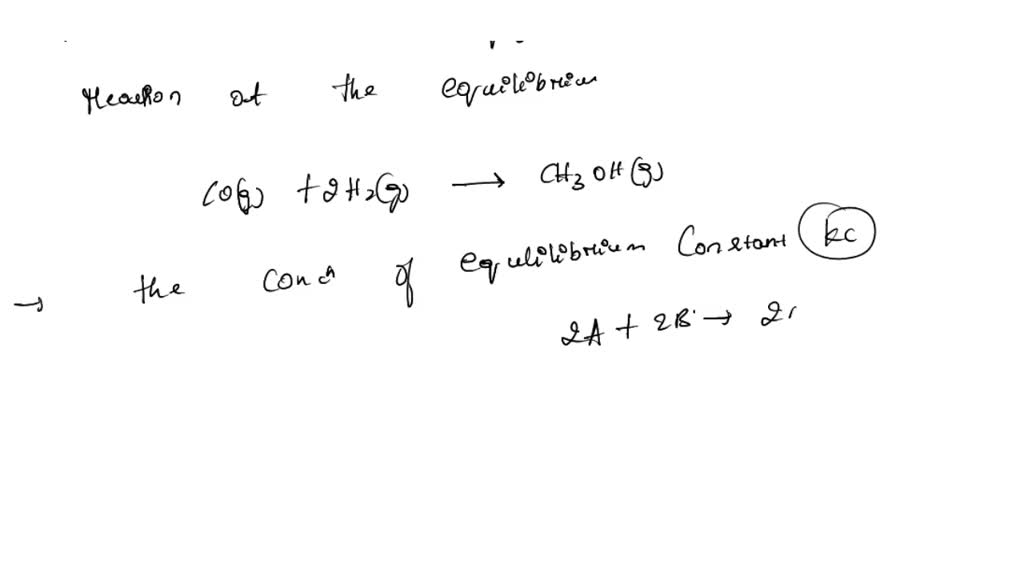 reaction at the equilibrium
CO(g) + 2H2(g) → CH3OH(g)
→ the concn of equilibrium Constant kc
2A + 2B → 2